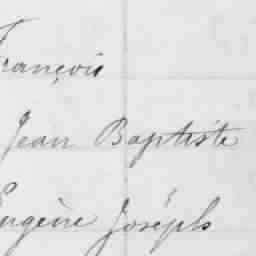 François
Jean Baptiste
Eugène Joséph